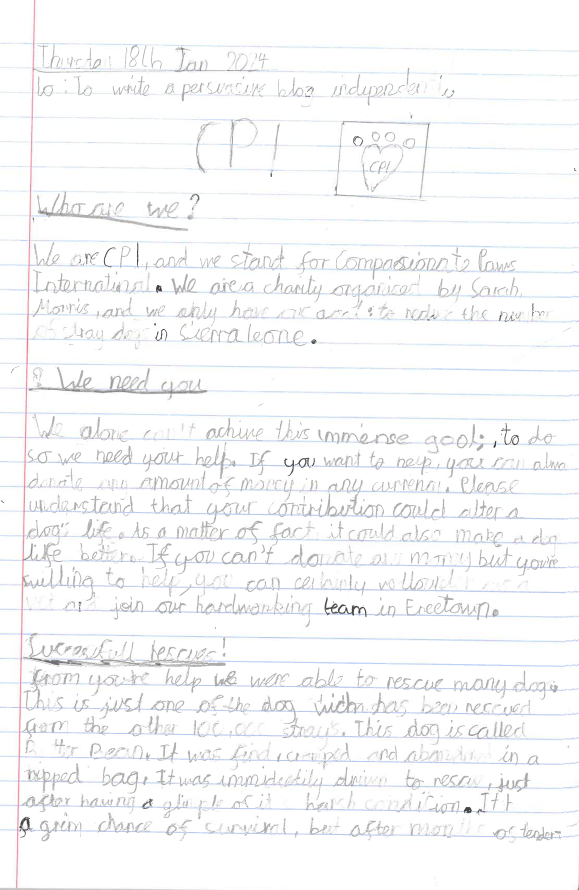 18th Jan 2024
Lo: To write a persuasive blog
CPI
CPI
Who are we?
We are CPI, and we stand for Compassionate Paws
International. We are a charity organised by Sarah
Morris, and we only have to reduce the number
of stray dogs in Sierra leone.
We need you
We alone can't achive this immense goal;, to do
so we need your help. If you want to help, you can also
donate any amount of money in any currency. Please
understand that your contribution could alter a
dog's life. As a matter of fact it could also make a dog
life better. If you can't donate any money but you're
willing to help, you can certainly
join our hardworking team in Freetown.
Successfull rescues!
From you're help we were able to rescue many dogs.
This is just one of the dog has been rescued
from the other strays. This dog is called
Bean. It was find, and abandoned in a
ripped bag. It was to rescue, just
after having a of it harsh condition. It
a grim chance of survival, but after months of tender